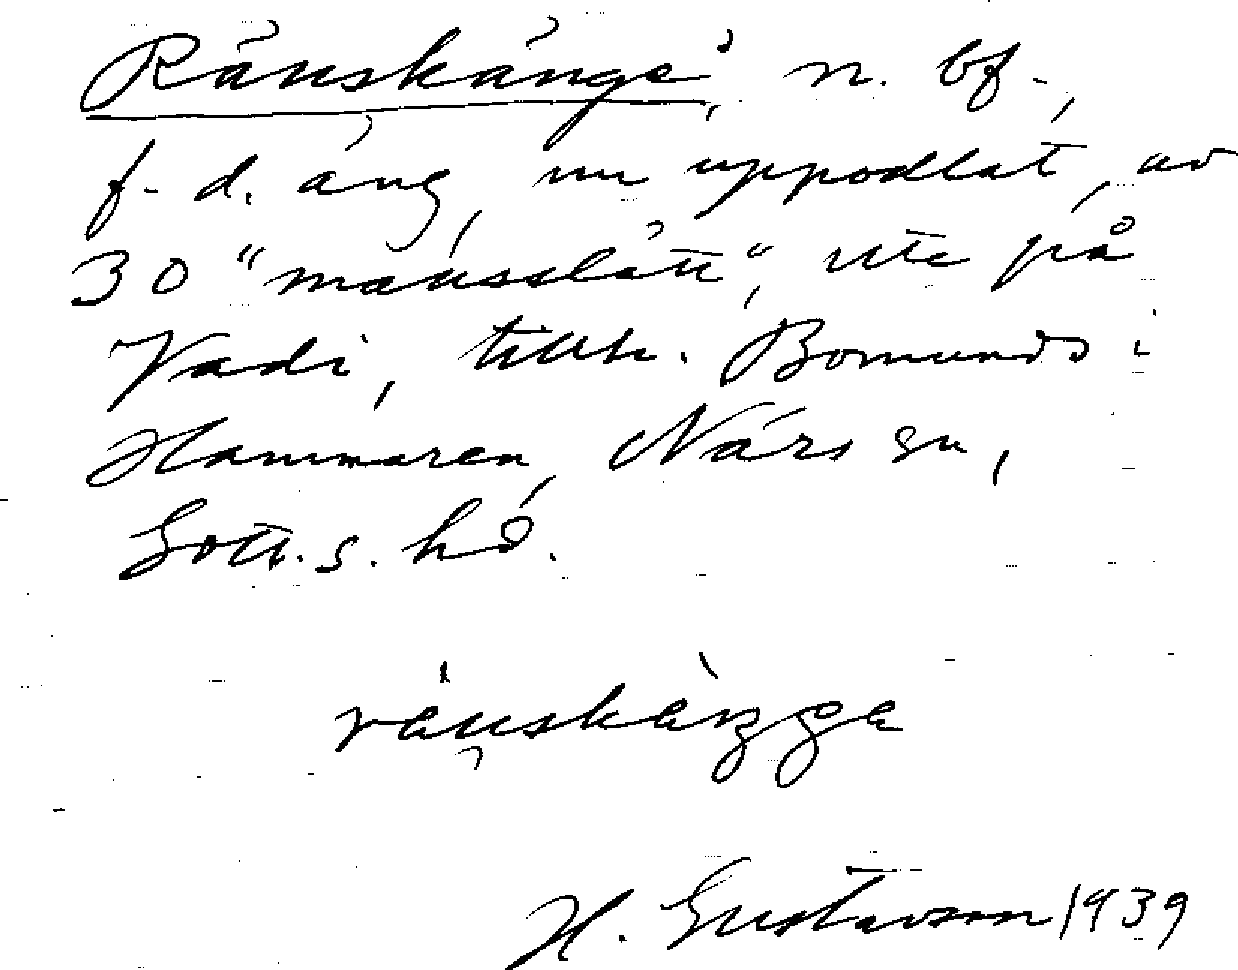 Ränskänge, n. bf.,
f. d. äng, nu uppodlat, av
30 "mansslätt", ute på
Vadi, tillh. Bomunds i
Hammaren, När sn,
Gotl. s. hd.
ränskäŋge
H. Gustavson 1939